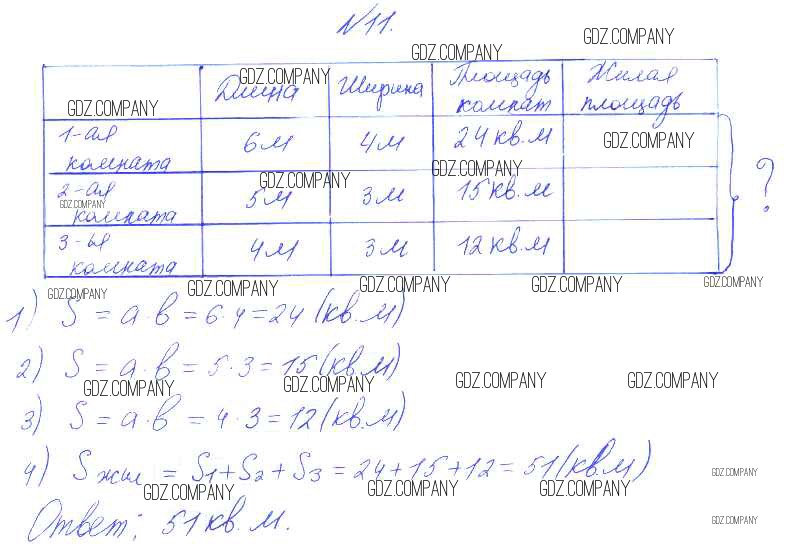 N 11.
GDZ.COMPANY
GDZ.COMPANY
Длина Ширина Площадь комнат Жилая площадь
GDZ.COMPANY
GDZ.COMPANY
1-ая комната 6 м 4 м 24 кв.м
GDZ.COMPANY
GDZ.COMPANY
GDZ.COMPANY
2-ая комната 5 м 3 м 15 кв.м
GDZ.COMPANY
?
3-ья комната 4 м 3 м 12 кв.м
GDZ.COMPANY GDZ.COMPANY GDZ.COMPANY GDZ.COMPANY GDZ.COMPANY
1) S = a · b = 6 · 4 = 24 (кв.м)
2) S = a · b = 5 · 3 = 15 (кв.м)
GDZ.COMPANY GDZ.COMPANY GDZ.COMPANY GDZ.COMPANY
3) S = a · b = 4 · 3 = 12 (кв.м)
4) S жил = S1 + S2 + S3 = 24 + 15 + 12 = 51 (кв.м)
GDZ.COMPANY
GDZ.COMPANY GDZ.COMPANY GDZ.COMPANY
Ответ: 51 кв. м.
GDZ.COMPANY